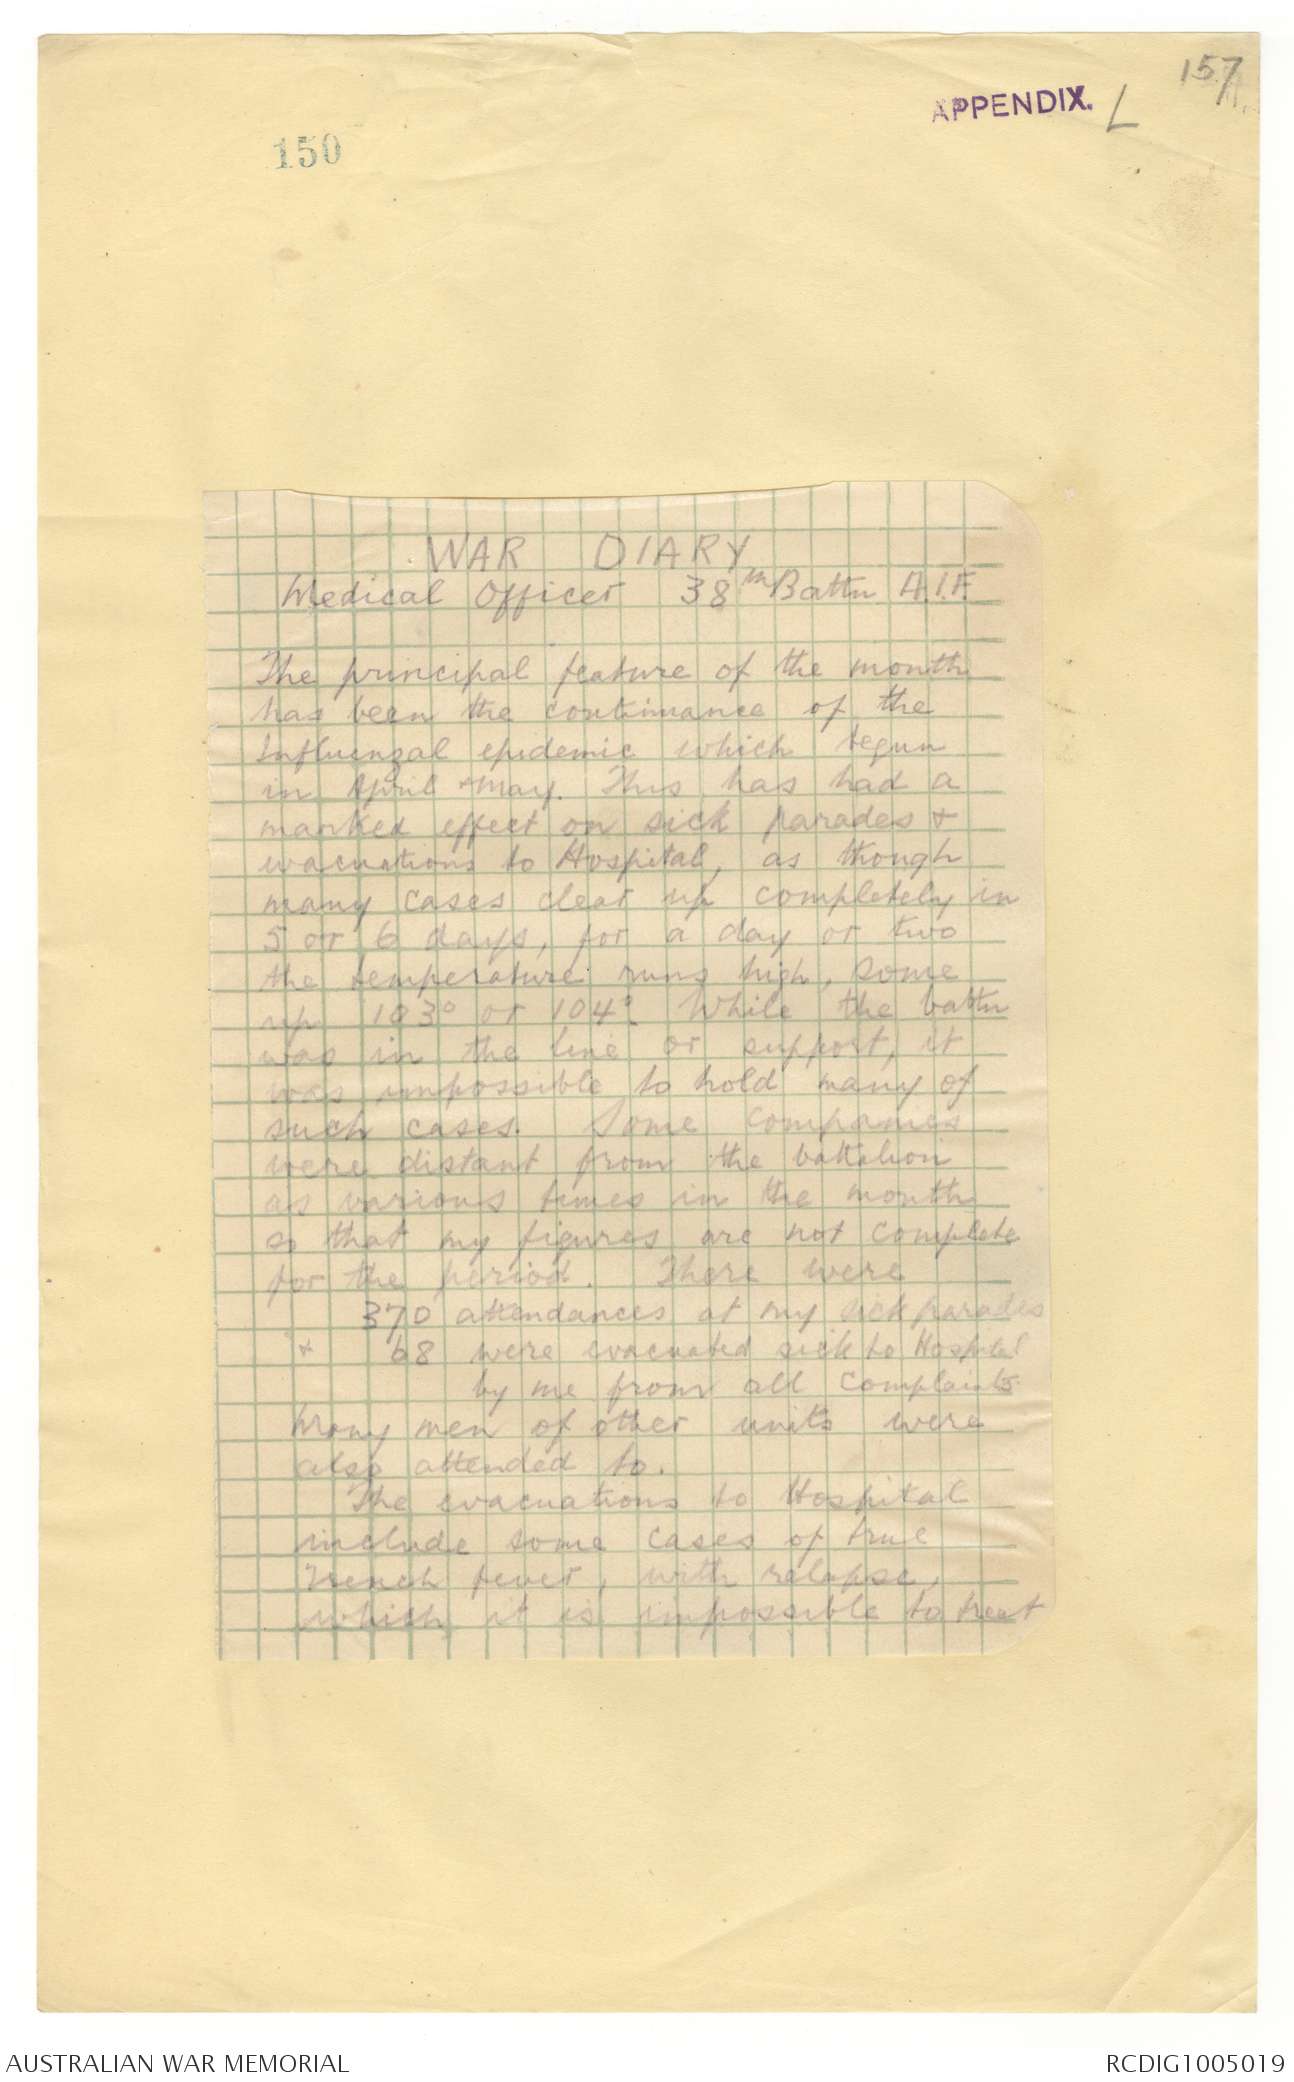 157
APPENDIX. L
150
WAR DIARY
Medical Officer 38th Battn A.I.F
The principal feature of the month
has been the continuance of the
Influenzal epidemic which begun
in April & May. This has had a
marked effect on sick parades &
evacuations to Hospital, as though
many cases clear up completely in
5 or 6 days, for a day or two
the temperature runs high, some
up 103° or 104°. While the battn
was in the line or support, it
was impossible to hold many of
such cases. Some companies
were distant from the battalion
as various times in the month
so that my figures are not complete
for the period. There were
370 attendances at my sick parades
& 68 were evacuated sick to Hospital
by me from all complaints.
Many men of other units were
also attended to.
The evacuations to Hospital
include some cases of true
Trench fever, with relapse,
which it is impossible to treat
AUSTRALIAN WAR MEMORIAL
RCDIG1005019